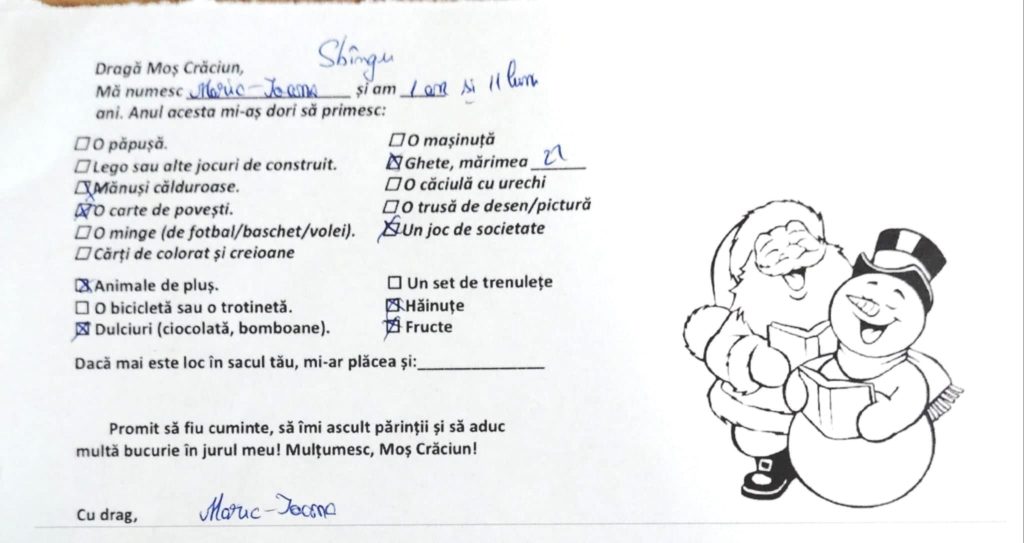 Sbîngu
Dragă Moș Crăciun,
Mă numesc Maria-Ioana și am 1 an și 11 luni
ani. Anul acesta mi-aș dori să primesc:
☐ O păpușă.
☐ Lego sau alte jocuri de construit.
☒ Mănuși călduroase.
☒ O carte de povești.
☐ O minge (de fotbal/baschet/volei).
☐ Cărți de colorat și creioane
☐ O mașinuță
☒ Ghete, mărimea 21
☐ O căciulă cu urechi
☐ O trusă de desen/pictură
☒ Un joc de societate
☒ Animale de pluș.
☐ O bicicletă sau o trotinetă.
☒ Dulciuri (ciocolată, bomboane).
☐ Un set de trenulețe
☒ Hăinuțe
☒ Fructe
Dacă mai este loc în sacul tău, mi-ar plăcea și:_______________
Promit să fiu cuminte, să îmi ascult părinții și să aduc
multă bucurie în jurul meu! Mulțumesc, Moș Crăciun!
Cu drag, Maria-Ioana